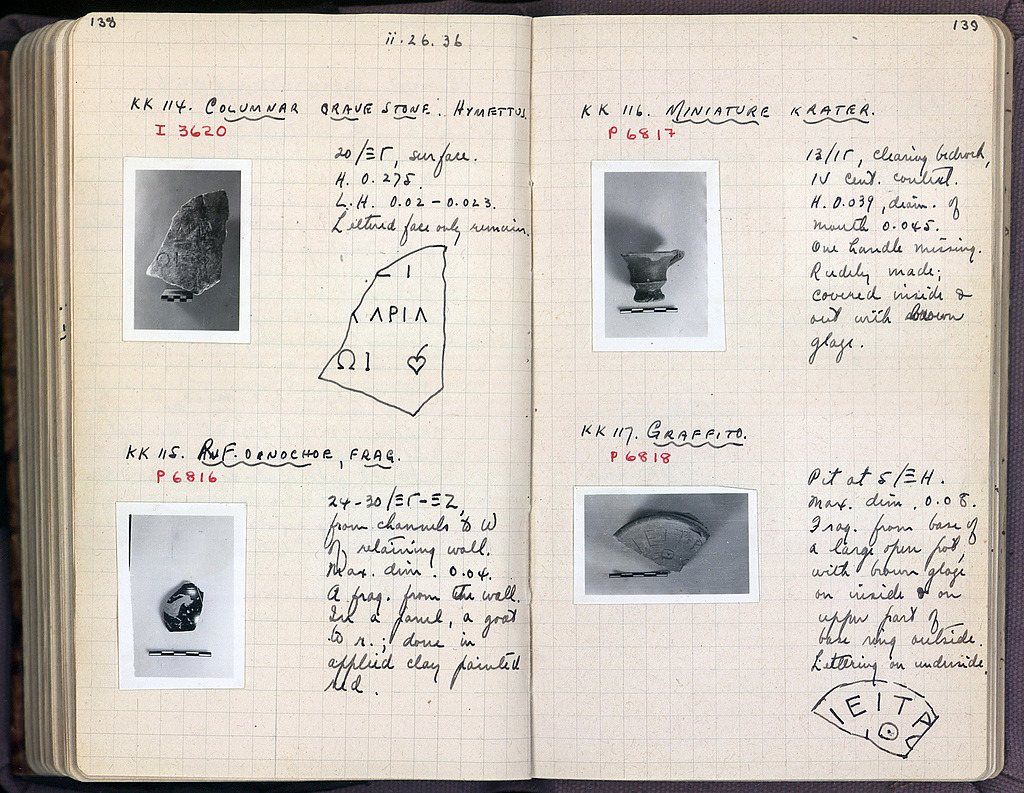 138
ii.26.36
KK 114. COLUMNAR GRAVE STONE. HYMETTUS.
I 3620
20/ΞΓ, surface.
H. 0.275.
L.H. 0.02 – 0.023.
Lettered face only remain.
Ι
ΑΡΙΑ
ΩΙ
KK 115. R.F. OINOCHOE, FRAG.
P 6816
24-30/ΞΓ-ΞΖ,
from channels to W
of retaining wall.
Max. dim. 0.04.
A frag. from the wall.
In a panel, a goat
to r.; done in
applied clay painted
red.
139
KK 116. MINIATURE KRATER.
P 6817
13/ΙΓ, clearing bedrock,
IV cent. context.
H. 0.039, diam. of
mouth 0.045.
One handle missing.
Rudely made;
covered inside &
out with brown
glaze.
KK 117. GRAFFITO.
P 6818
Pit at 5/ΞΗ.
Max. dim. 0.08.
Frag. from base of
a large open pot,
with brown glaze
on inside & on
upper part of
base ring outside.
Lettering on underside
ΙΕΙΤΡ